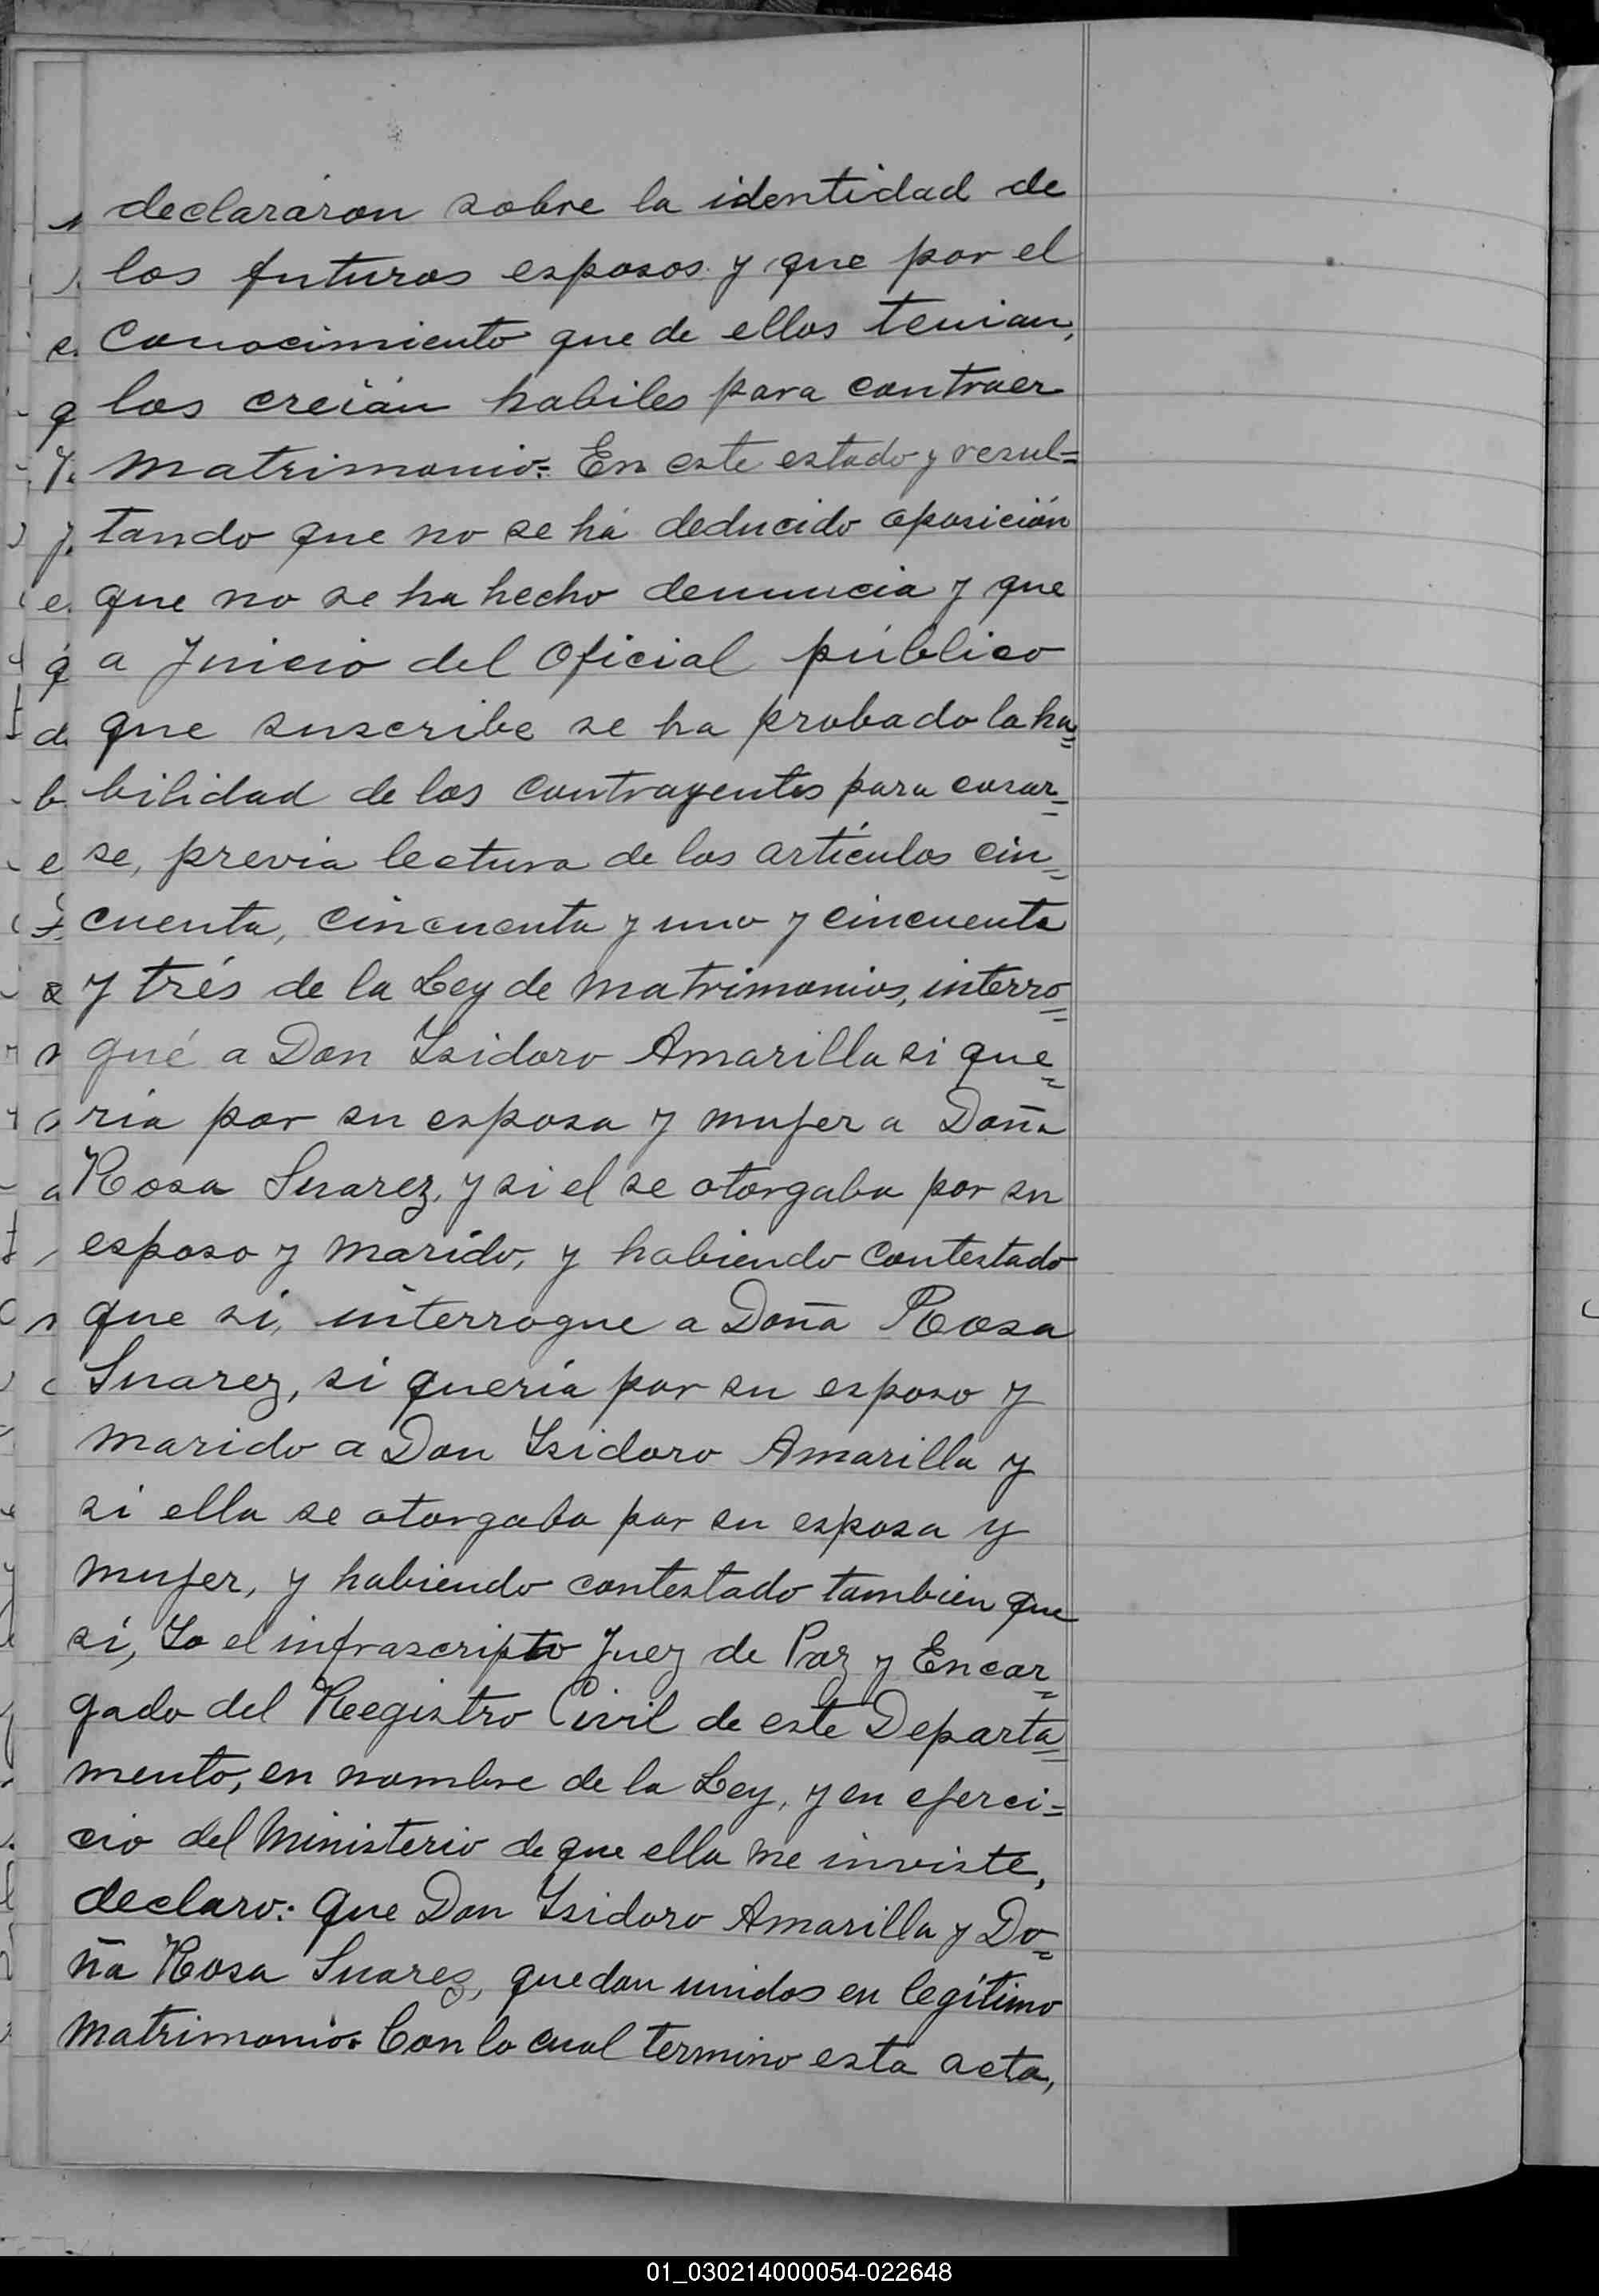 declararon sobre la identidad de
los futuros esposos y que por el
conocimiento que de ellos tenian,
los creián habiles para contraer
matrimonio= En este estado y resul=
tando que no se há deducido oposición
que no se ha hecho denuncia y que
a Juicio del Oficial público
que suscribe se ha probado la ha=
bilidad de los contrayentes para casar=
se, previa lectura de los artículos cin=
cuenta, cincuenta y uno y cincuenta
y trés de la Ley de matrimonios, interro=
gué a Don Isidoro Amarilla si que=
ria por su esposa y mujer a Doña
Rosa Suarez, y si el se otorgaba por su
esposo y marido, y habiendo contestado
que si, interrogue a Doña Rosa
Suarez, si quería por su esposo y
marido a Don Isidoro Amarilla y
si ella se otorgaba por su esposa y
mujer, y habiendo contestado tambien que
sí, Yo el infrascripto Juez de Paz y Encar=
gado del Reegistro Civil de este Departa=
mento, en nombre de la Ley, y en ejerci=
cio del Ministerio de que ella me inviste,
declaro: que Don Isidoro Amarilla y Do=
ña Rosa Suarez, quedan unidos en legítimo
matrimonio. Con lo cual termino esta acta,
01_030214000054-022648